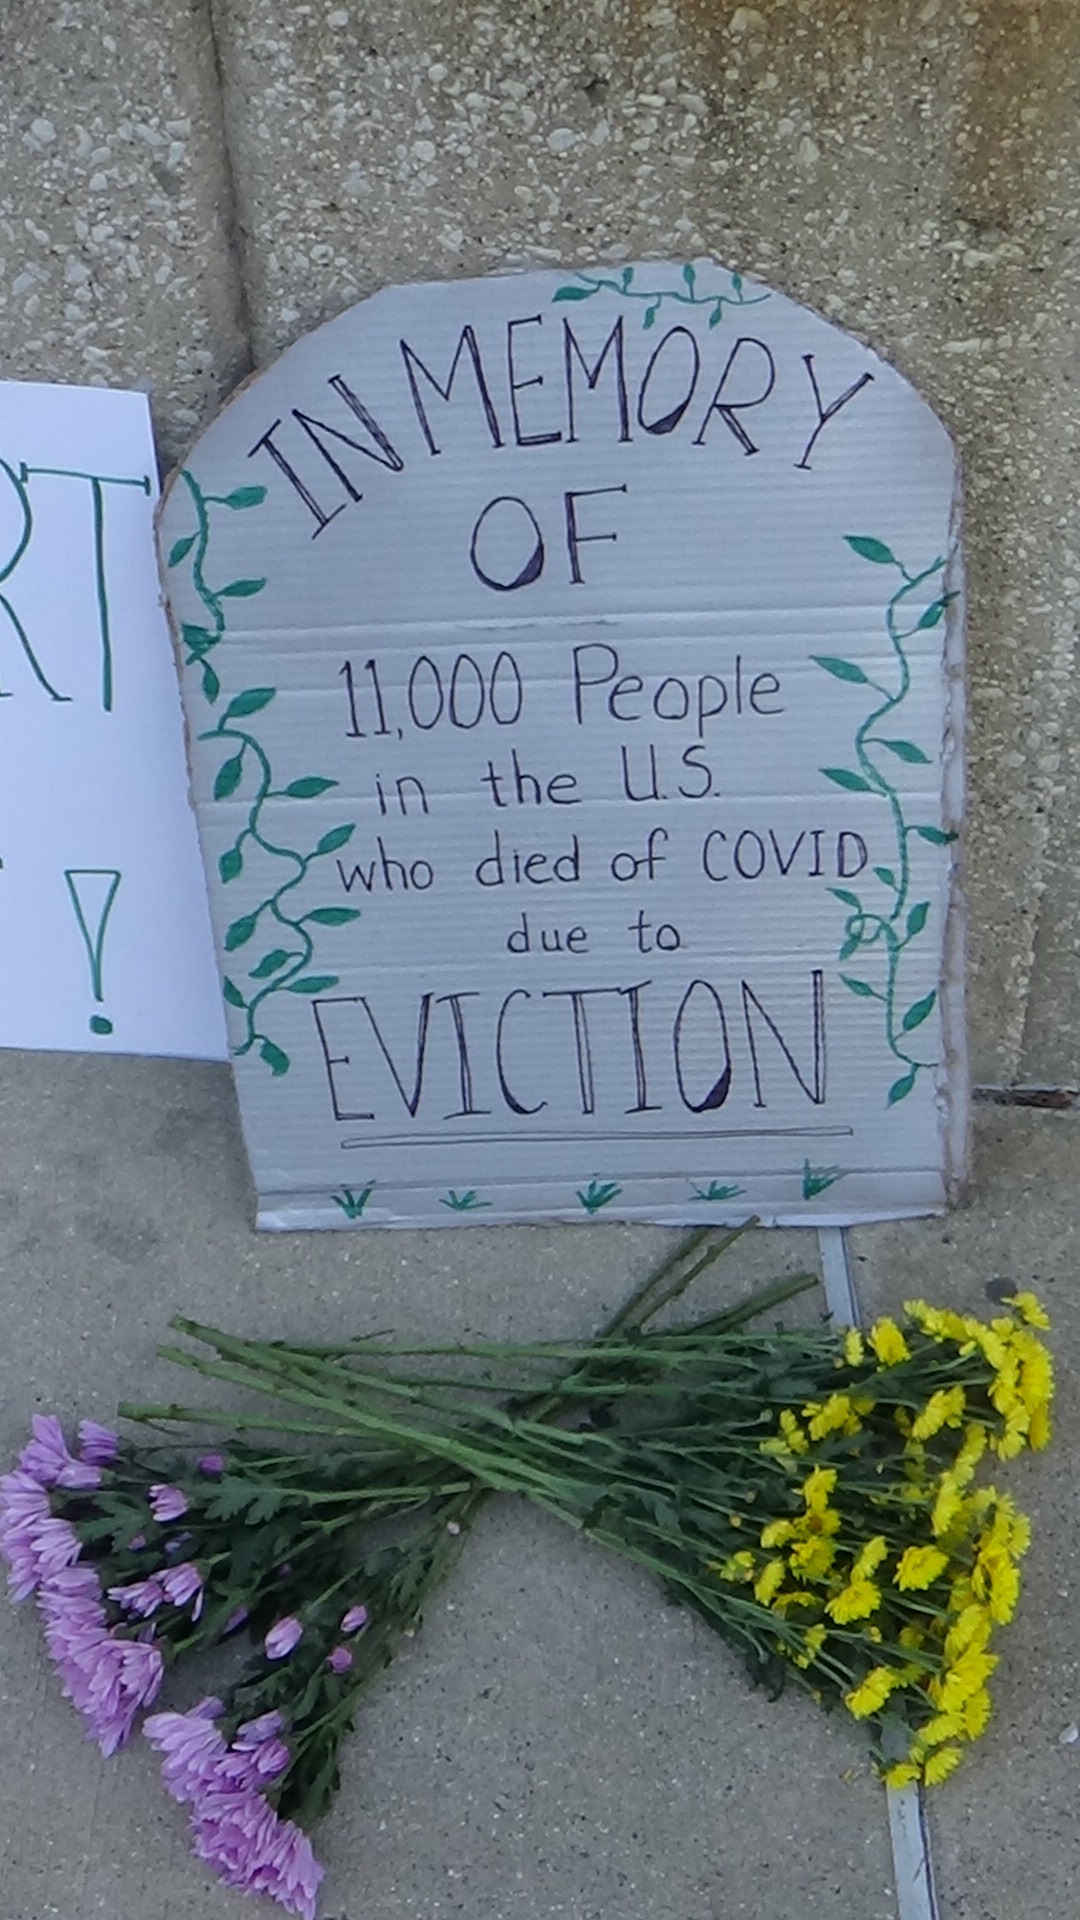 IN MEMORY
OF
11,000 People
in the U.S.
who died of COVID
due to
EVICTION
RT
!